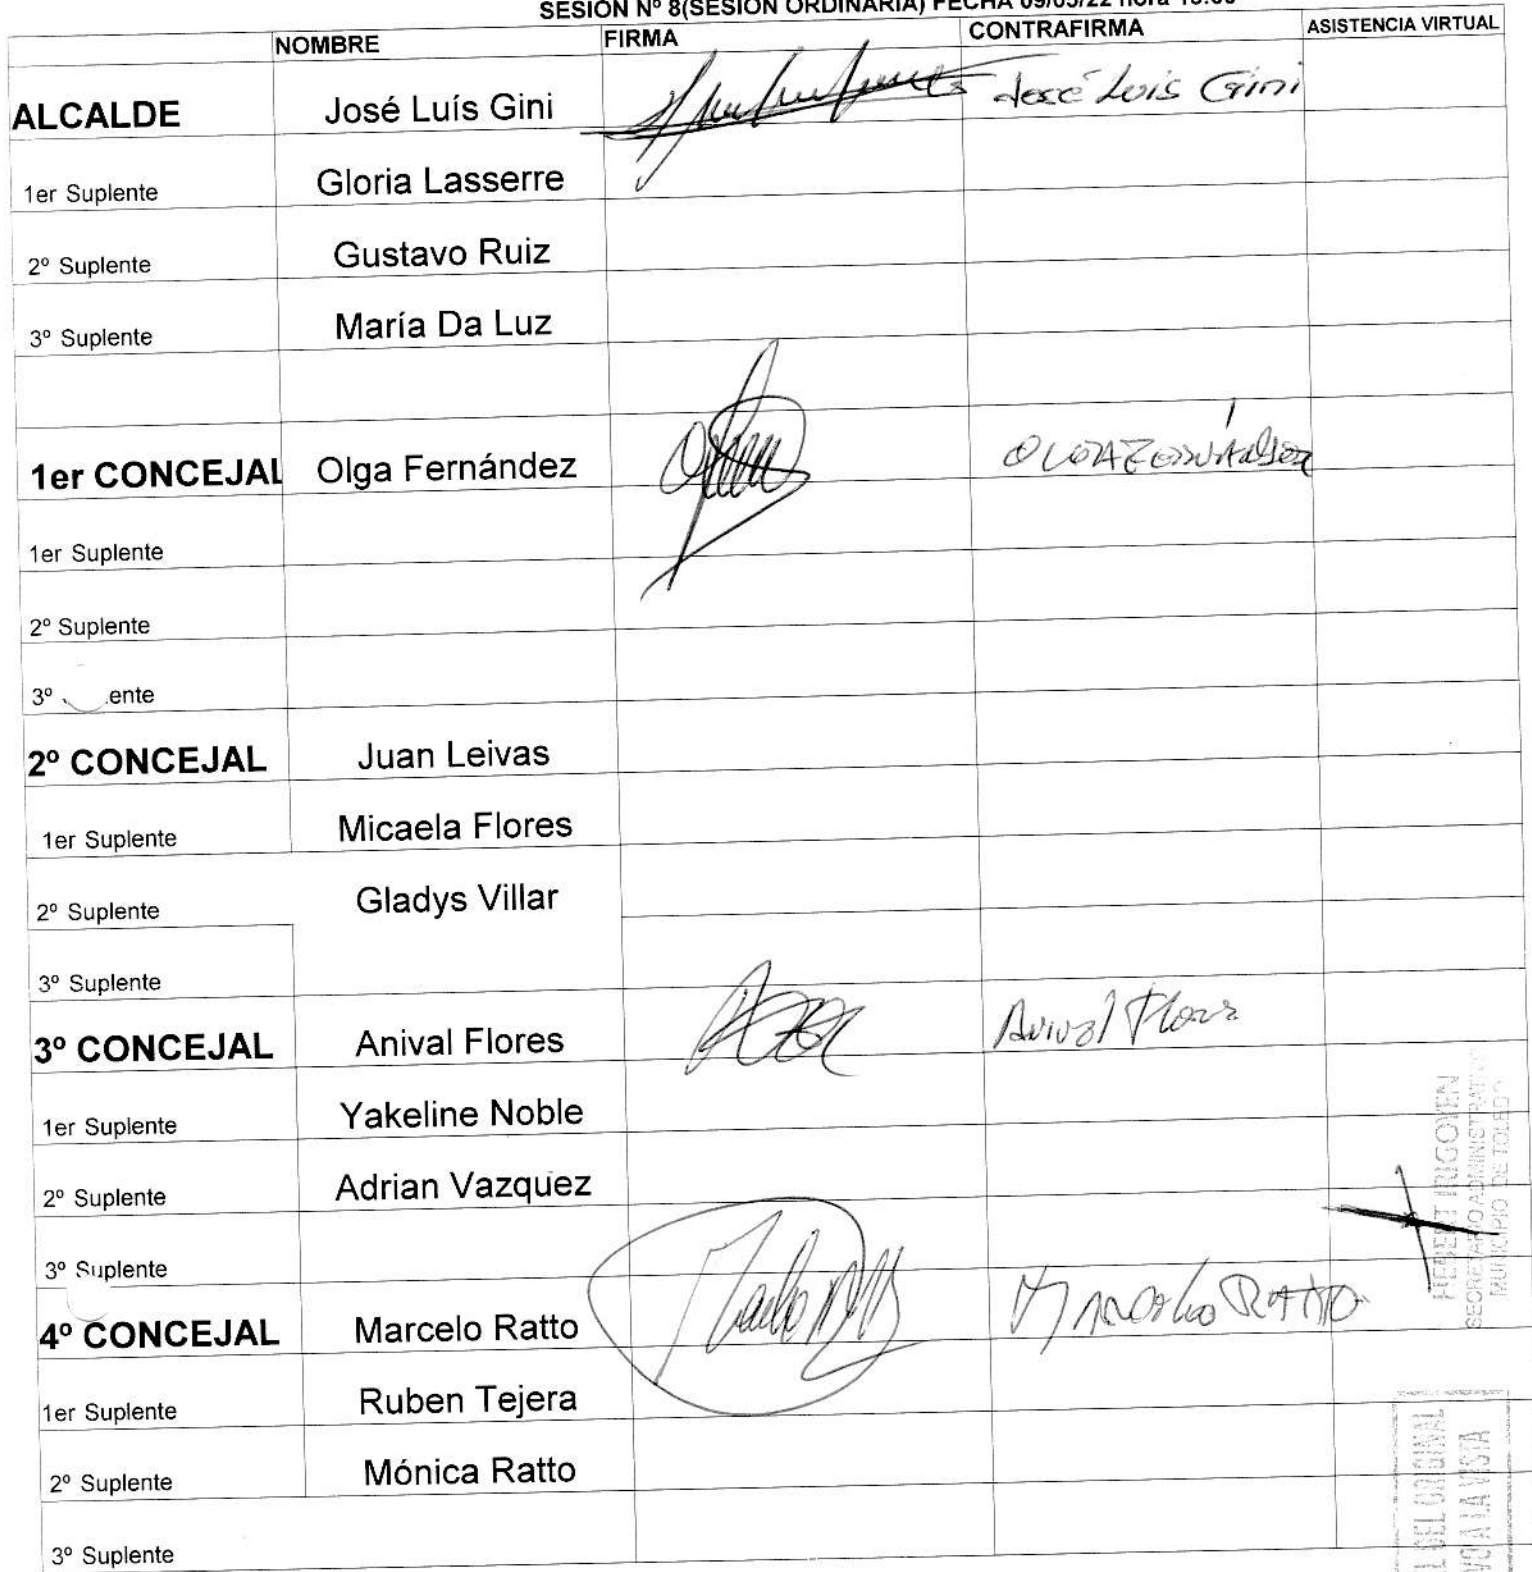 SESIÓN Nº 8(SESIÓN ORDINARIA) FECHA 09/05/22 hora
NOMBRE FIRMA CONTRAFIRMA ASISTENCIA VIRTUAL
ALCALDE José Luís Gini José Luis Gini
1er Suplente Gloria Lasserre
2º Suplente Gustavo Ruiz
3º Suplente María Da Luz
1er CONCEJAL Olga Fernández
1er Suplente
2º Suplente
3º ente
2º CONCEJAL Juan Leivas
1er Suplente Micaela Flores
2º Suplente Gladys Villar
3º Suplente
3º CONCEJAL Anival Flores Anival Flores
1er Suplente Yakeline Noble
2º Suplente Adrian Vazquez
3º Suplente
4º CONCEJAL Marcelo Ratto Marcelo Ratto
1er Suplente Ruben Tejera
2º Suplente Mónica Ratto
3º Suplente
HEBERT IRIGOYEN
SECRETARIO ADMINISTRATIVO
MUNICIPIO DE TOLEDO
DEL ORIGINAL
A LA VISTA